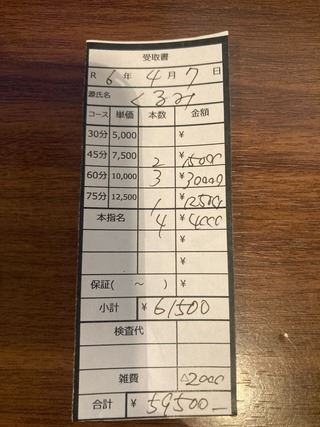 受取書
R 6 年 4 月 7 日
源氏名 くるみ
コース 単価 本数 金額
30分 5,000 ¥
45分 7,500 2 ¥15000
60分 10,000 3 ¥30000
75分 12,500 1 ¥12500
本指名 4 ¥4000
¥
¥
保証( ～ ) ¥
小計 ¥61500
検査代
雑費 △2000
合計 ¥59500-